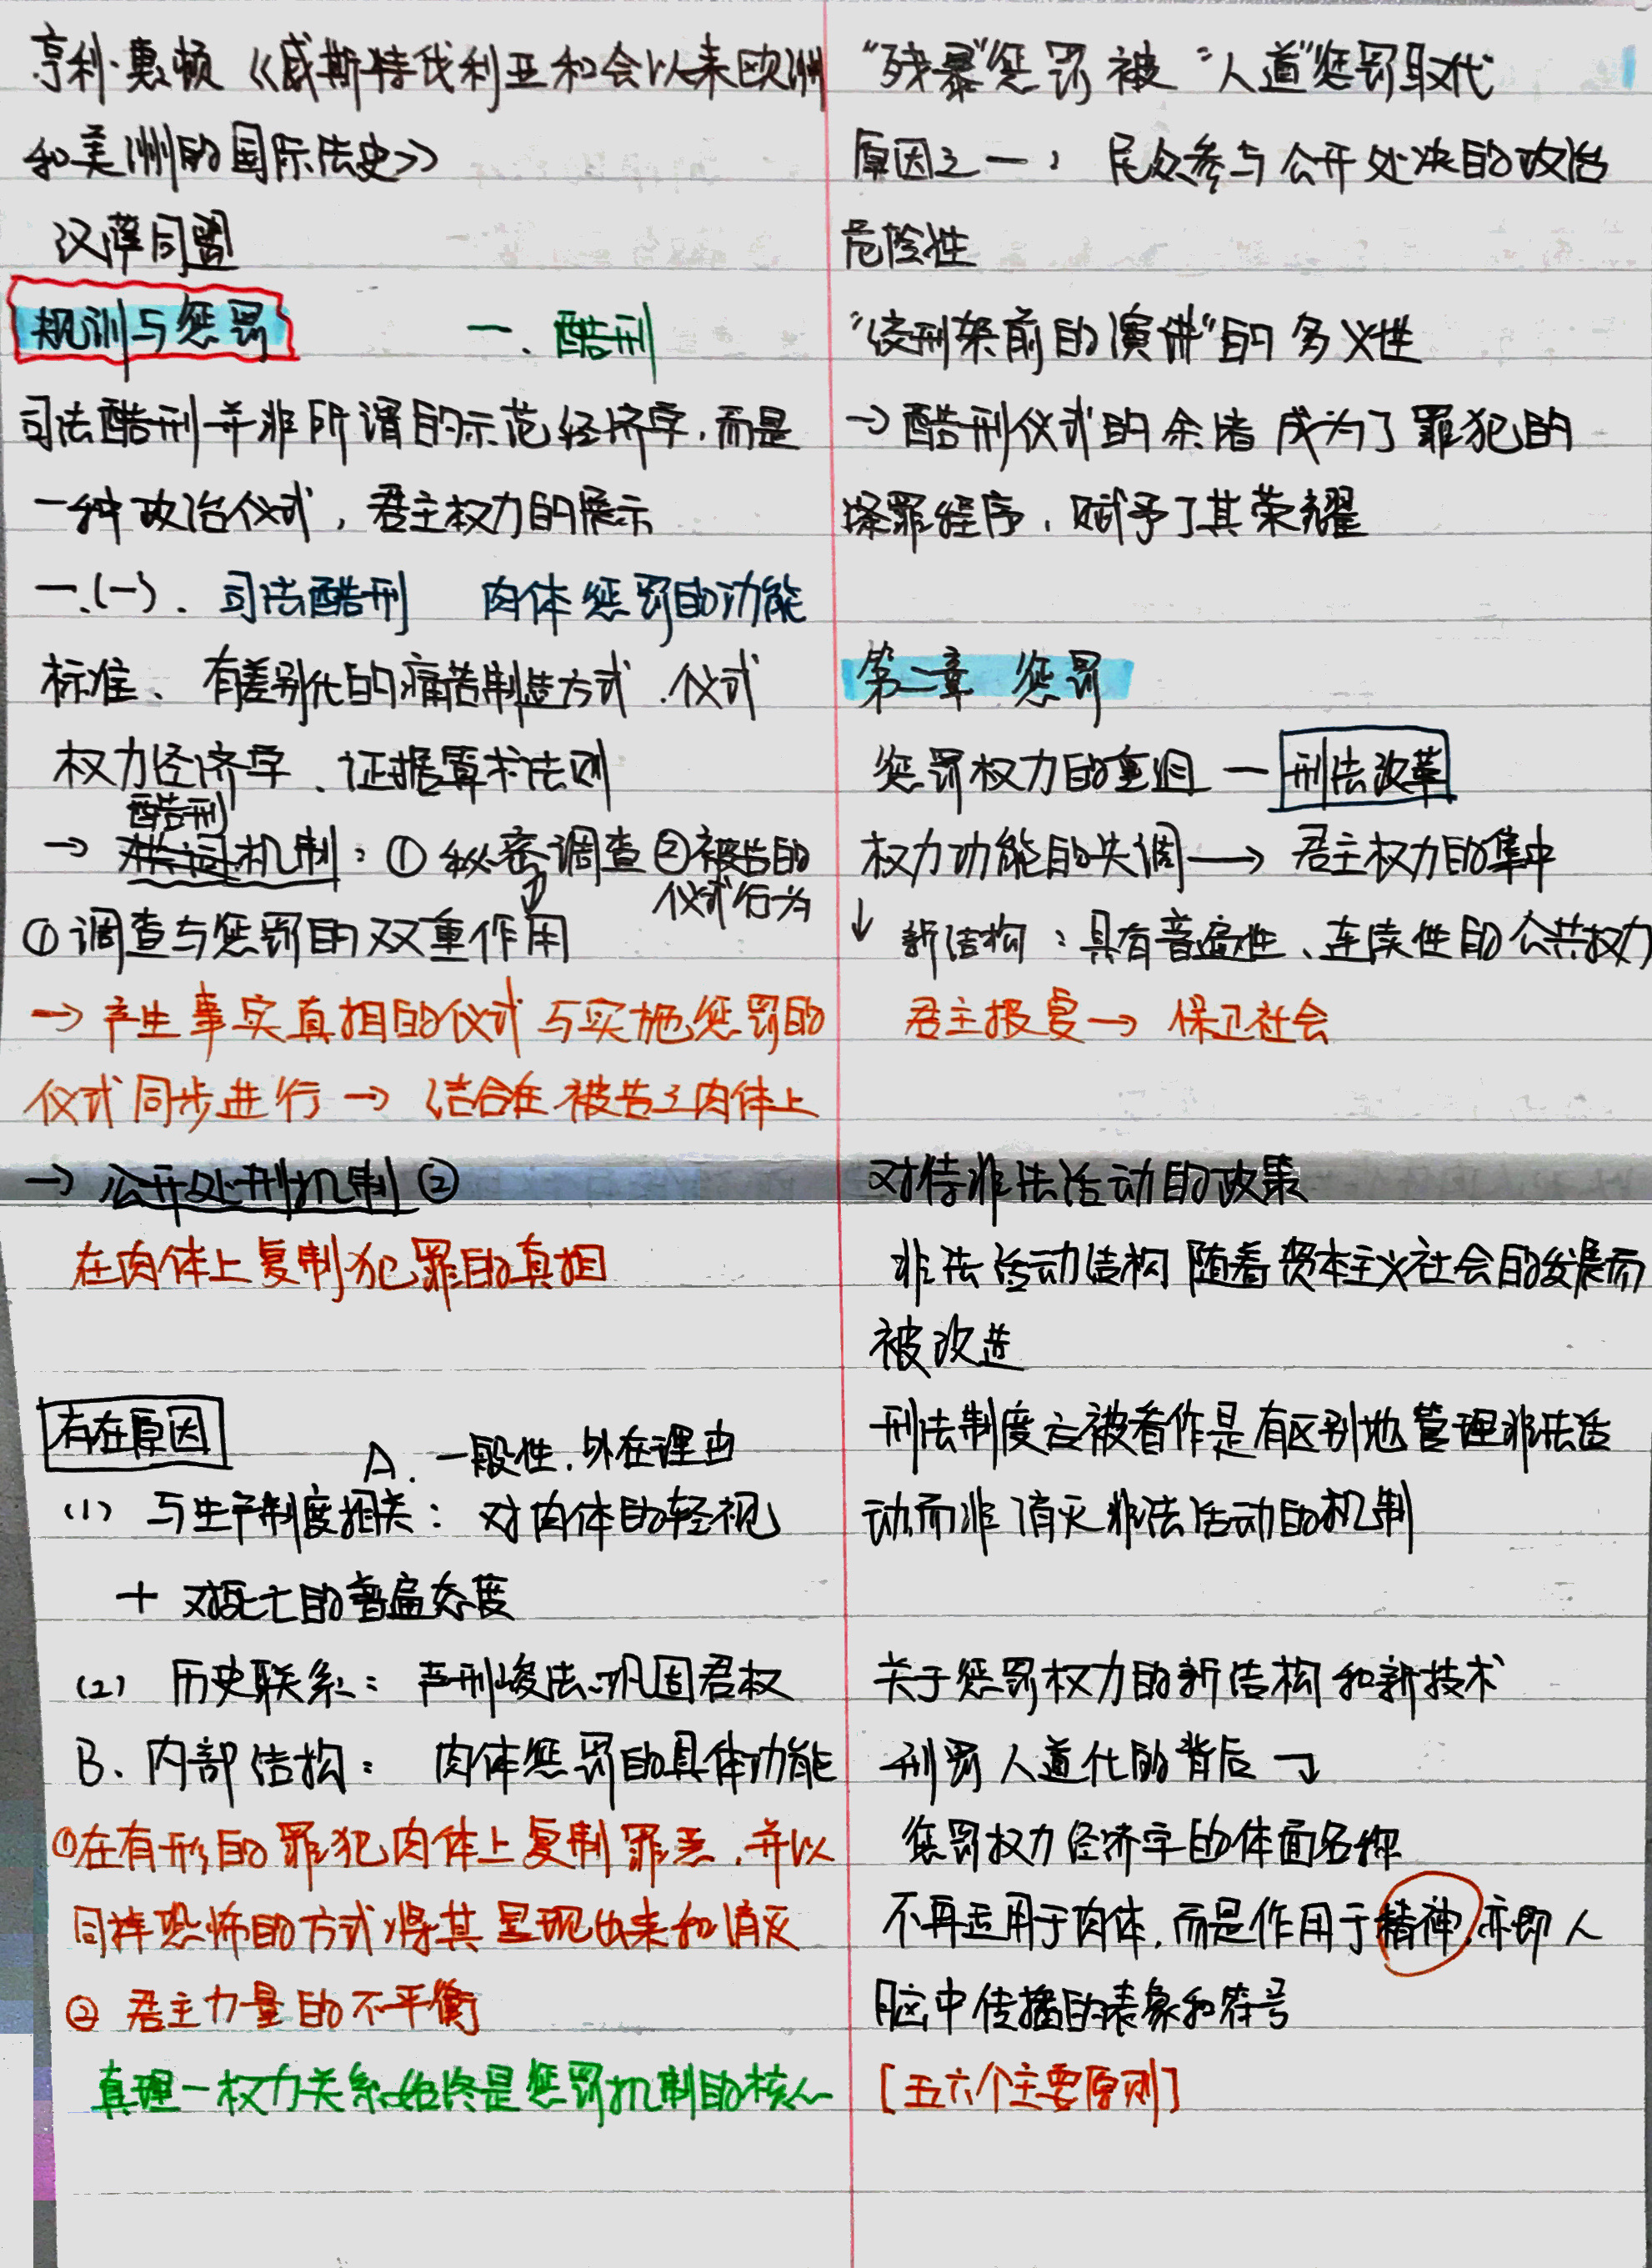 亨利·惠顿《威斯特伐利亚和会以来欧洲
和美洲的国际法史》
汉萨同盟
规训与惩罚 一、酷刑
司法酷刑并非所谓的示范经济学,而是
一种政治仪式,君主权力的展示
一.(一).司法酷刑 肉体惩罚的功能
标准、有差别化的痛苦制造方式、仪式
权力经济学、证据算术法则
酷刑
→ 机制:①秘密调查②被告的
仪式行为
①调查与惩罚的双重作用
→产生事实真相的仪式与实施惩罚的
仪式同步进行→结合在被告之肉体上
→公开处刑机制②
在肉体上复制犯罪的真相
存在原因
A.一般性.外在理由
(1)与生产制度相关:对肉体的轻视
+对死亡的普遍态度
(2)历史联系:严刑峻法巩固君权
B、内部结构:肉体惩罚的具体功能
①在有形的罪犯肉体上复制罪恶,并以
同样恐怖的方式将其呈现出来和消灭
②君主力量的不平衡
真理—权力关系始终是惩罚机制的核心
“残暴”惩罚被“人道”惩罚取代
原因之一:民众参与公开处决的政治
危险性
“绞刑架前的演讲”的多义性
→酷刑仪式的 成为了罪犯的
涤罪程序,赋予了其荣耀
第二章 惩罚
惩罚权力的重组—刑法改革
权力功能的失调→君主权力的集中
↓新结构:具有普遍性、连续性的公共权力
君主报复→保卫社会
对待非法活动的政策
非法活动结构随着资本主义社会的发展而
被改进
刑法制度应被看作是有区别地管理非法活
动而非消灭非法活动的机制
关于惩罚权力的新结构和新技术
刑罚人道化的背后
惩罚权力经济学的体面名称
不再适用于肉体,而是作用于精神,亦即人
脑中传播的表象和符号
[五六个主要原则]